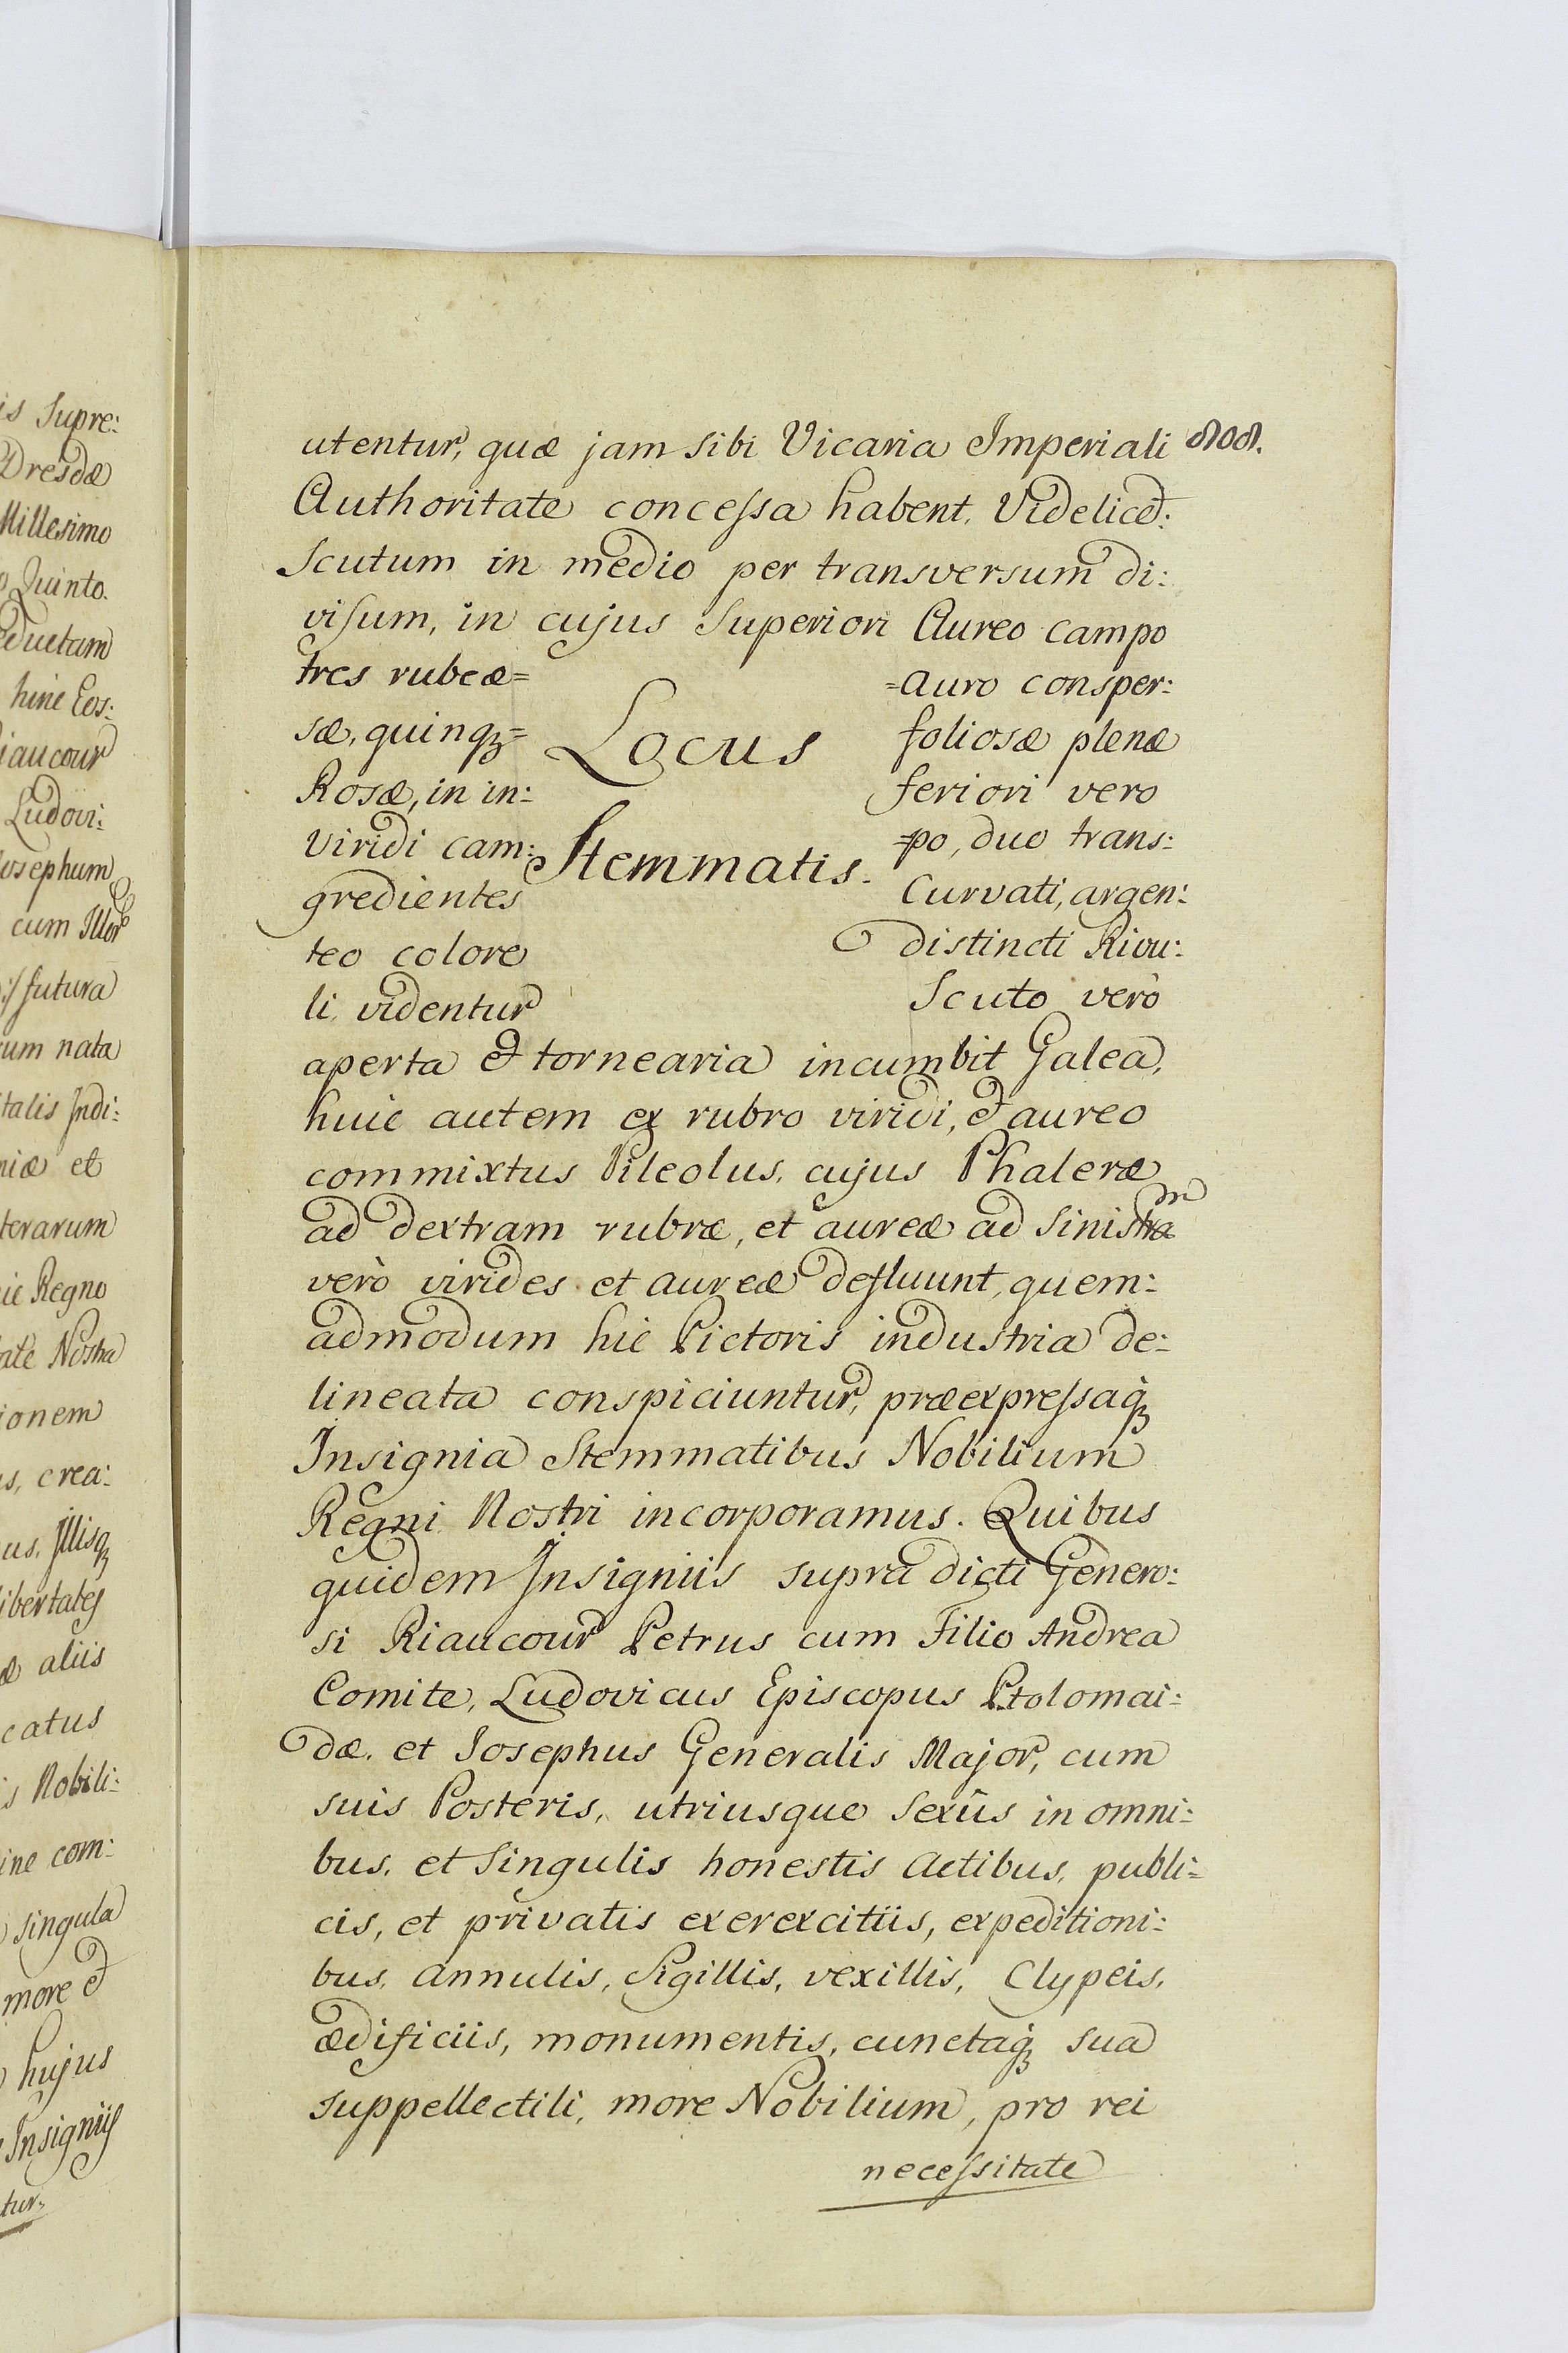 is Supre:
Dresdæ
Millesimo
Quinto.
hinc Eos:
Riaucour
Ludovi:
Josephum
cum Illor
futura
rum nata
talis Indi:
niæ et
terarum
Regno
Nostra
ionem
s, crea:
us, Illisq
libertates
æ aliis
catus
is Nobili:
ine com:
singula
more et
hujus
Insigniis
tur.
utentur, quæ jam sibi Vicaria Imperiali 808.
Authoritate concessa habent. Videlicet:
Scutum in medio per transversum di:
visum, in cujus Superiori Aureo campo
tres rubeæ= =auro consper:
sæ, quinq= foliosæ plenæ
Locus
Rosæ, in in: feriori vero
viridi cam: =po, duo trans:
Stemmatis.
gredientes Curvati, argen:
teo colore distincti Rivu:
li videntur Scuto verò
aperta et tornearia incumbit Galea,
huic autem ex rubro viridi, et aureo
commixtus Pileolus, cujus Phaleræ
ad dextram rubræ, et aureæ ad sinistram
verò virides et aureæ defluunt, quem:
admodum hic Pictoris industria de:
lineata conspiciuntur, præexpressaq
Insignia Stemmatibus Nobilium
Regni Nostri incorporamus. Quibus
quidem Insigniis supra dicti Genero:
si Riaucour Petrus cum Filio Andrea
Comite, Ludovicus Episcopus Ptolomai:
dæ, et Josephus Generalis Major, cum
suis Posteris, utriusque Sexûs in omni:
bus, et Singulis honestis Actibus, publi=
cis, et privatis exerexcitiis, expeditioni:
bus, Annulis, Sigillis, vexillis, Clypeis,
ædificiis, monumentis, cunctaq sua
suppellectili, more Nobilium, pro rei
necessitate